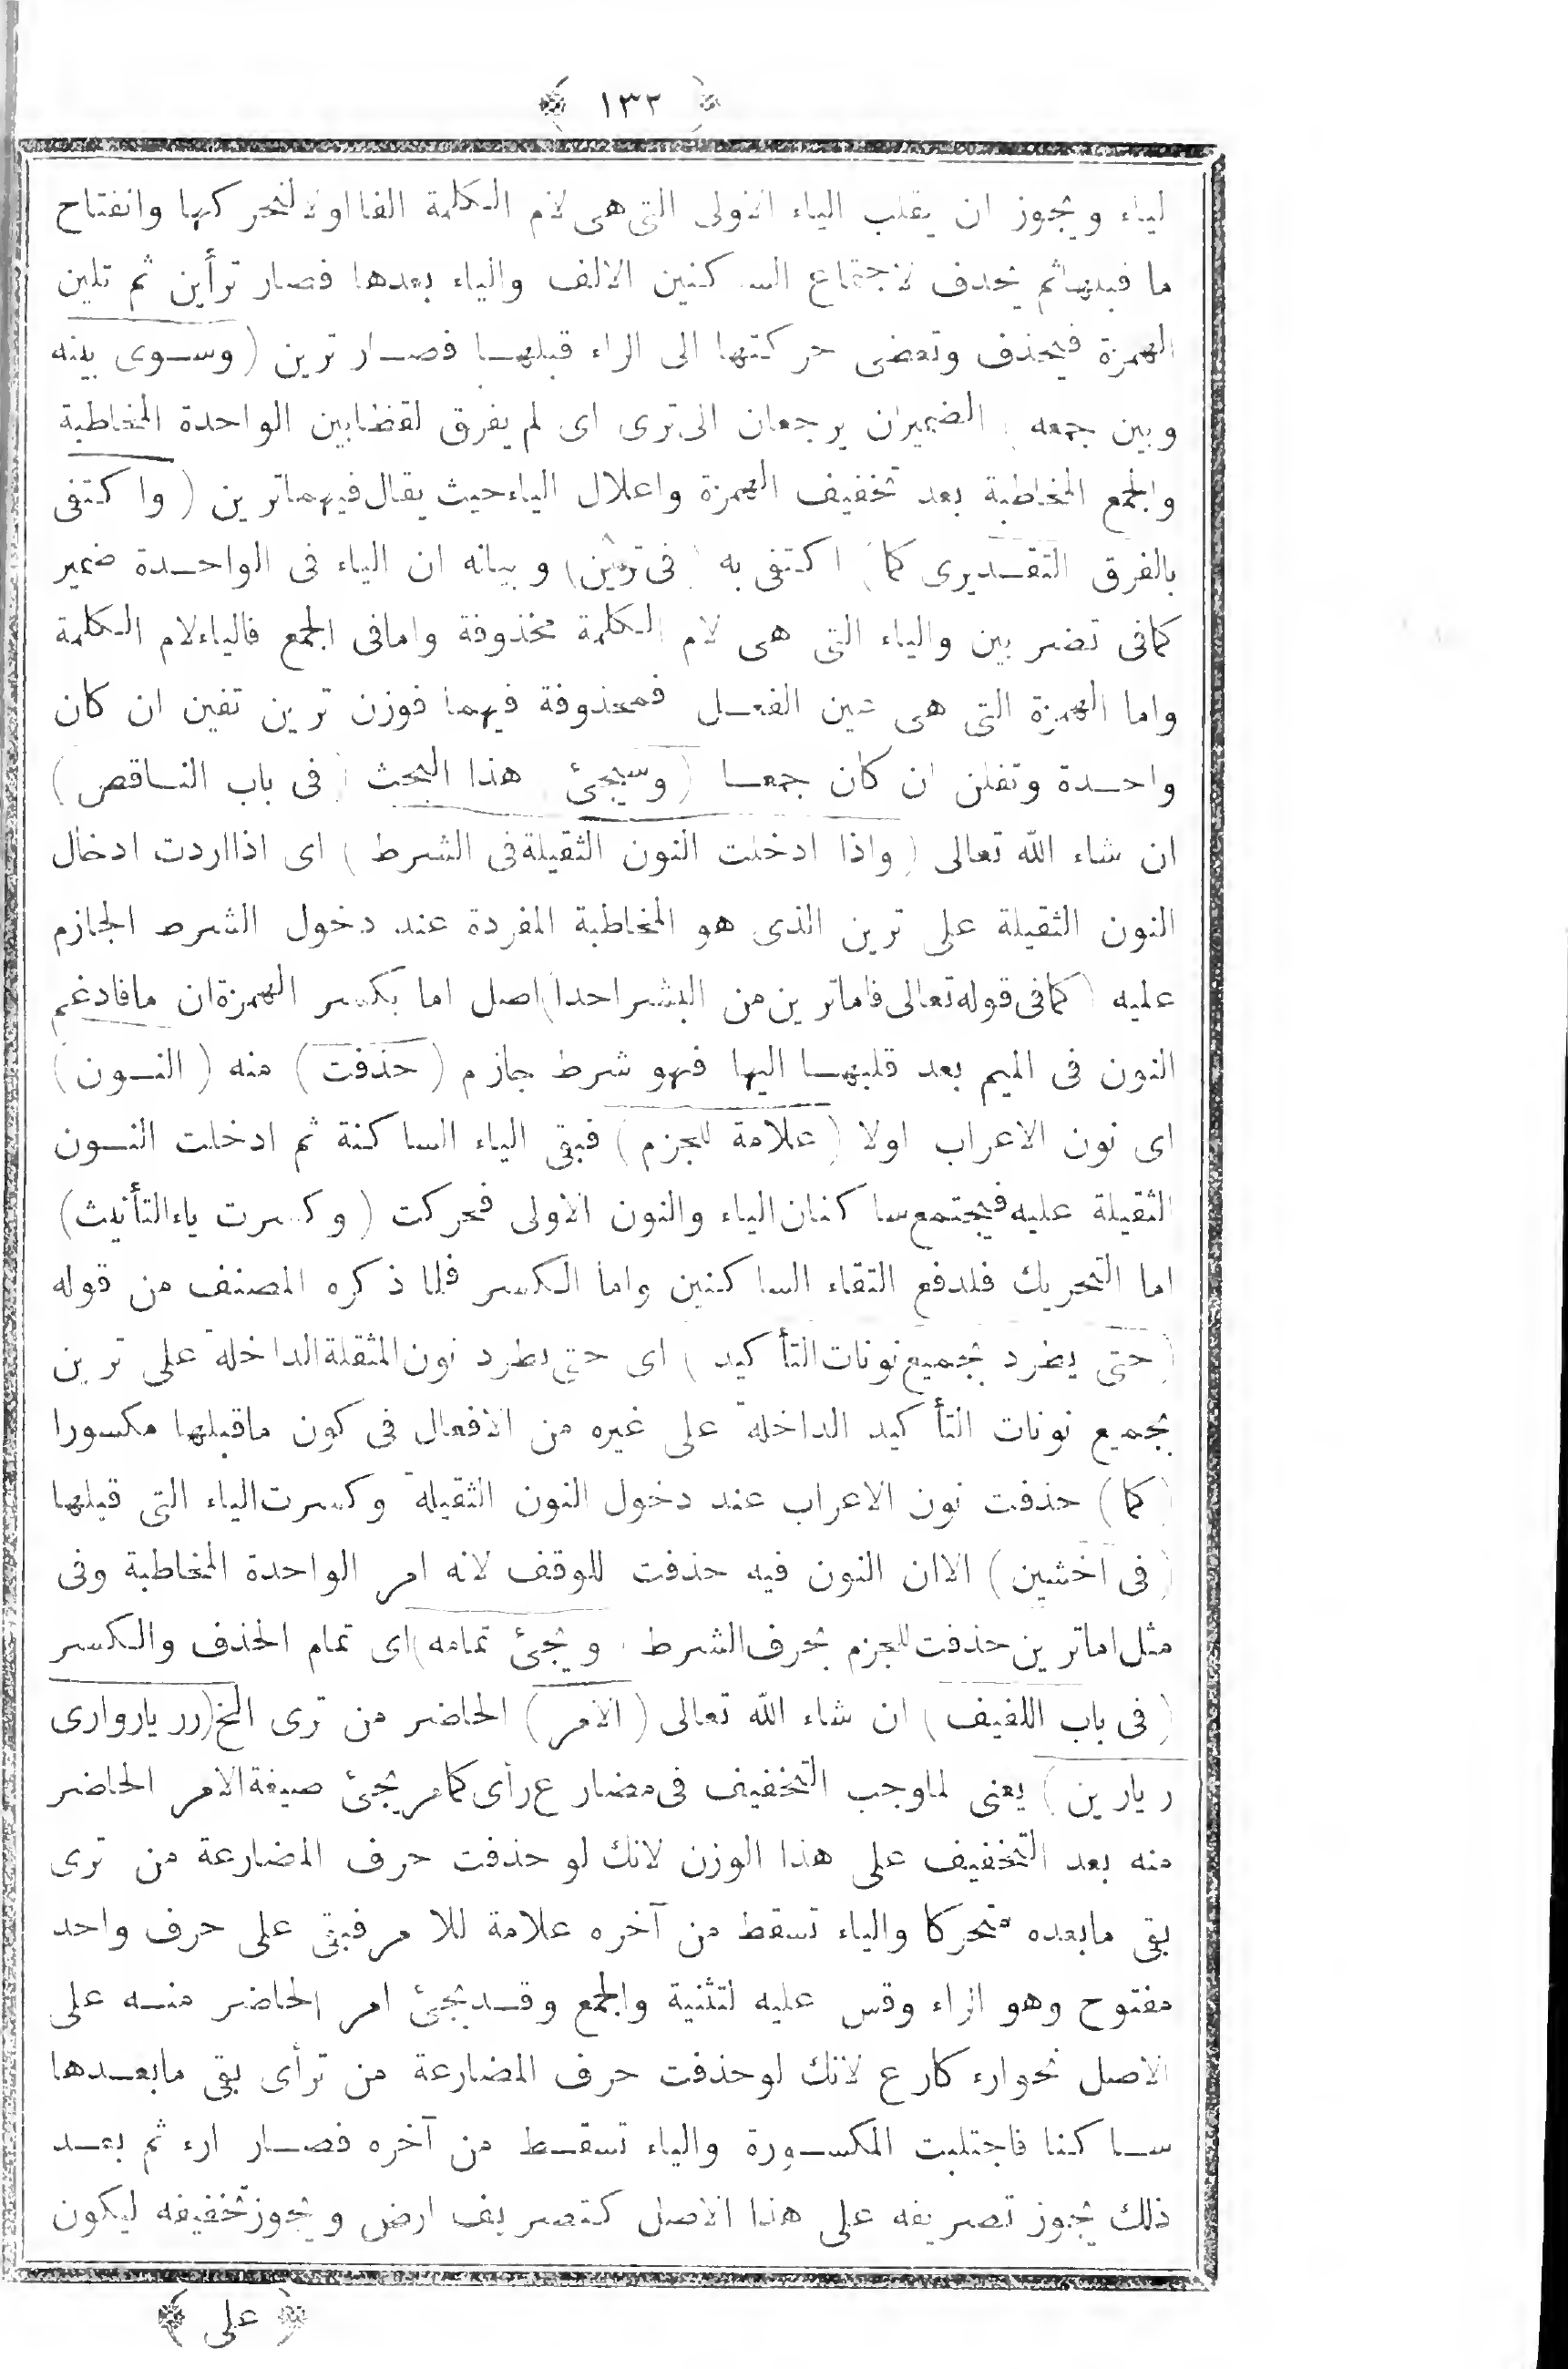 ﴿ ١٣٢ ﴾
لياء ويجوز ان يقلب الياء الاولى التى هى لام الكلمة الفا اولا لتحركها وانفتاح
ما قبلها ثم يحذف لاجتماع الساكنين الالف والياء بعدها فصار ترأين ثم تلين
الهمزة فيحذف وتعطى حركتها الى الراء قبلهـا فصـار ترين (وسـوى بينه
وبين جمعه) الضميران يرجعان الى ترى اى لم يفرق لفظا بين الواحدة المخاطبة
والجمع المخاطبة بعد تخفيف الهمزة واعلال الياء حيث يقال فيهما ترين (واكتفى
بالفرق التقـديرى كما) اكتفى به (فى ترين) وبيانه ان الياء فى الواحـدة ضمير
كما فى تضربين والياء التى هى لام الكلمة محذوفة واما فى الجمع فالياء لام الكلمة
واما الهمزة التى هى عين الفعـل فمحذوفة فيهما فوزن ترين تفين ان كان
واحـدة وتفلن ان كان جمعـا (وسيجئ هذا البحث) فى باب النـاقص)
ان شاء الله تعالى (واذا ادخلت النون الثقيلة فى الشرط) اى اذا اردت ادخال
النون الثقيلة على ترين الذى هو المخاطبة المفردة عند دخول الشرط الجازم
عليه (كما فى قوله تعالى فاما ترين من البشر احدا) اصل اما بكسر الهمزة ان ما فادغم
النون فى الميم بعد قلبهـا اليها فهو شرط جازم (حذفت) منه (النـون)
اى نون الاعراب اولا (علامة للجزم) فبقى الياء الساكنة ثم ادخلت النـون
الثقيلة عليه فيجتمع ساكنان الياء والنون الاولى فحركت (وكسرت ياء التأنيث)
اما التحريك فلدفع التقاء الساكنين واما الكسر فلما ذكره المصنف من قوله
(حتى يطرد بجميع نونات التأكيد) اى حتى يطرد نون المثقلة الداخلة على ترين
بجميع نونات التأكيد الداخلة على غيره من الافعال فى كون ماقبلها مكسورا
(كما) حذفت نون الاعراب عند دخول النون الثقيلة وكسرت الياء التى قبلها
(فى اخشين) الاان النون فيه حذفت للوقف لانه امر الواحدة المخاطبة وفى
مثل اما ترين حذفت للجزم بحرف الشرط (ويجئ تمامه) اى تمام الحذف والكسر
(فى باب اللفيف) ان شاء الله تعالى (الامر) الحاضر من ترى الخ (رر ياروارى
ر يارين) يعنى لما وجب التخفيف فى مضارع رأى كما مر يجئ صيغة الامر الحاضر
منه بعد التخفيف على هذا الوزن لانك لو حذفت حرف المضارعة من ترى
بقى مابعده متحركا والياء تسقط من آخره علامة للامر فبقى على حرف واحد
مفتوح وهو الراء وقس عليه لتثنية والجمع وقـد يجئ امر الحاضر منـه على
الاصل نحو ارء كارع لانك لو حذفت حرف المضارعة من ترأى بقى مابعـدها
سـاكنا فاجتلبت المكسـورة والياء تسقـط من آخره فصـار ارء ثم بعـد
ذلك يجوز تصريفه على هذا الاصل كتصريف ارض ويجوز تخفيفه ليكون
﴿ على ﴾